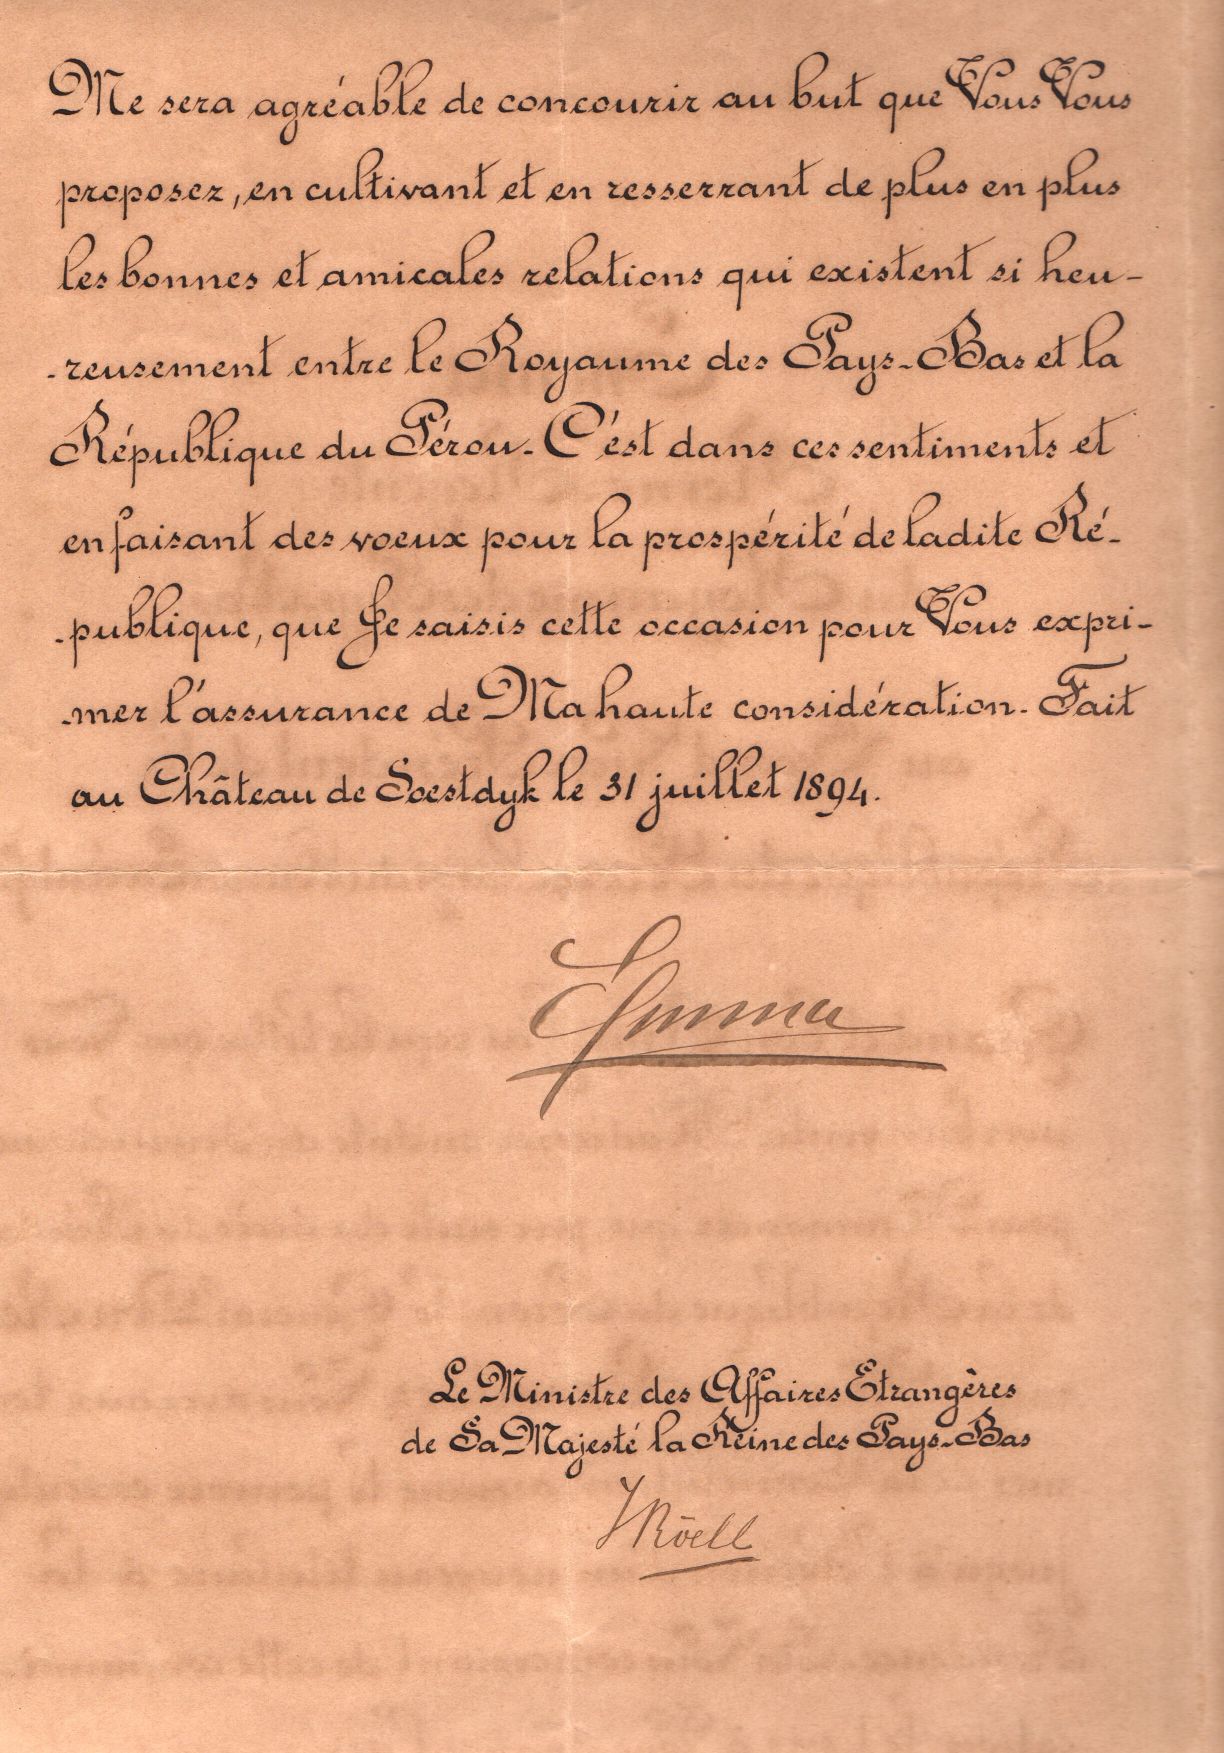 Me sera agréable de concourir au but que Vous Vous
proposez, en cultivant et en resserrant de plus en plus
les bonnes et amicales relations qui existent si heu-
-reusement entre le Royaume des Pays-Bas et la
République du Pérou. C'est dans ces sentiments et
en faisant des voeux pour la prospérité de ladite Ré-
-publique, que Je saisis cette occasion pour Vous expri-
-mer l'assurance de Ma haute considération. Fait
au Château de Soestdyk le 31 juillet 1894.
Emma
Le Ministre des Affaires Etrangères
de Sa Majesté la Reine des Pays-Bas
J Röell